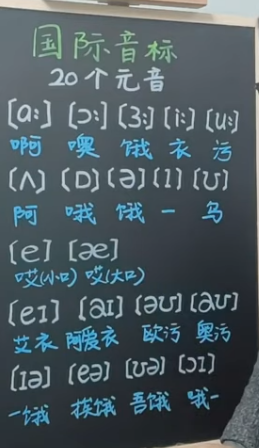 国际音标
20个元音
[ɑ:] [ɔ:] [ɜ:] [i:] [u:]
啊 噢 饿 衣 污
[ʌ] [ɒ] [ə] [ɪ] [ʊ]
阿 哦 饿 一 乌
[e] [æ]
哎(小口) 哎(大口)
[eɪ] [aɪ] [əʊ] [aʊ]
艾衣 阿爱衣 欧污 奥污
[ɪə] [eə] [ʊə] [ɔɪ]
一饿 挨饿 吾饿 哦一